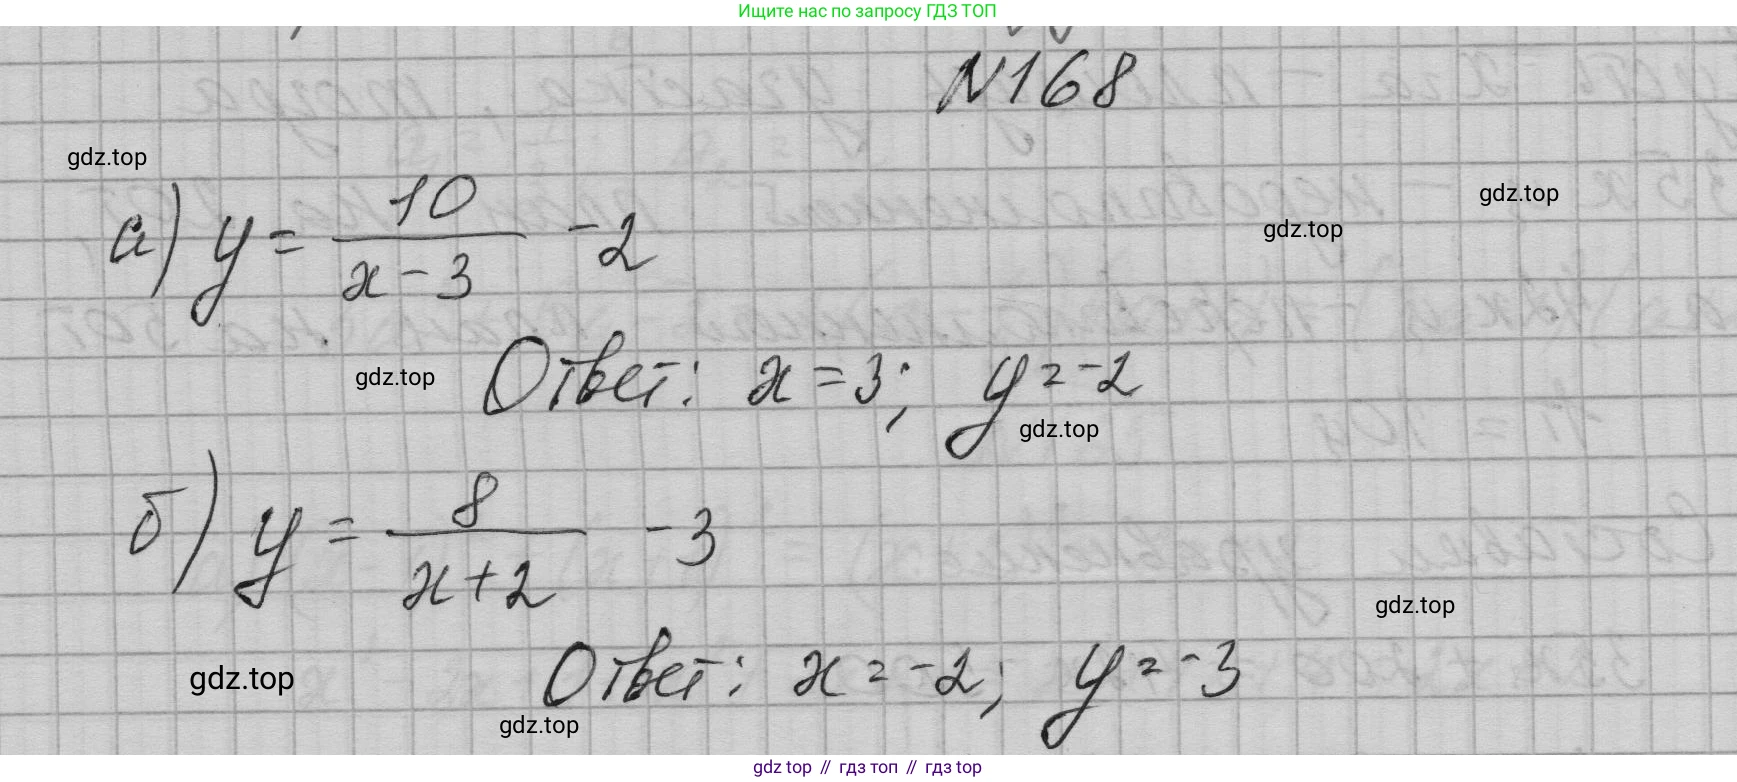 Ищите нас по запросу ГДЗ ТОП
N168
gdz.top
gdz.top
gdz.top
а) y = 10/(x - 3) - 2
gdz.top
Ответ: x = 3; y = -2
gdz.top
б) y = 8/(x + 2) - 3
gdz.top
gdz.top
Ответ: x = -2; y = -3
gdz.top
gdz top // гдз топ // gdz top